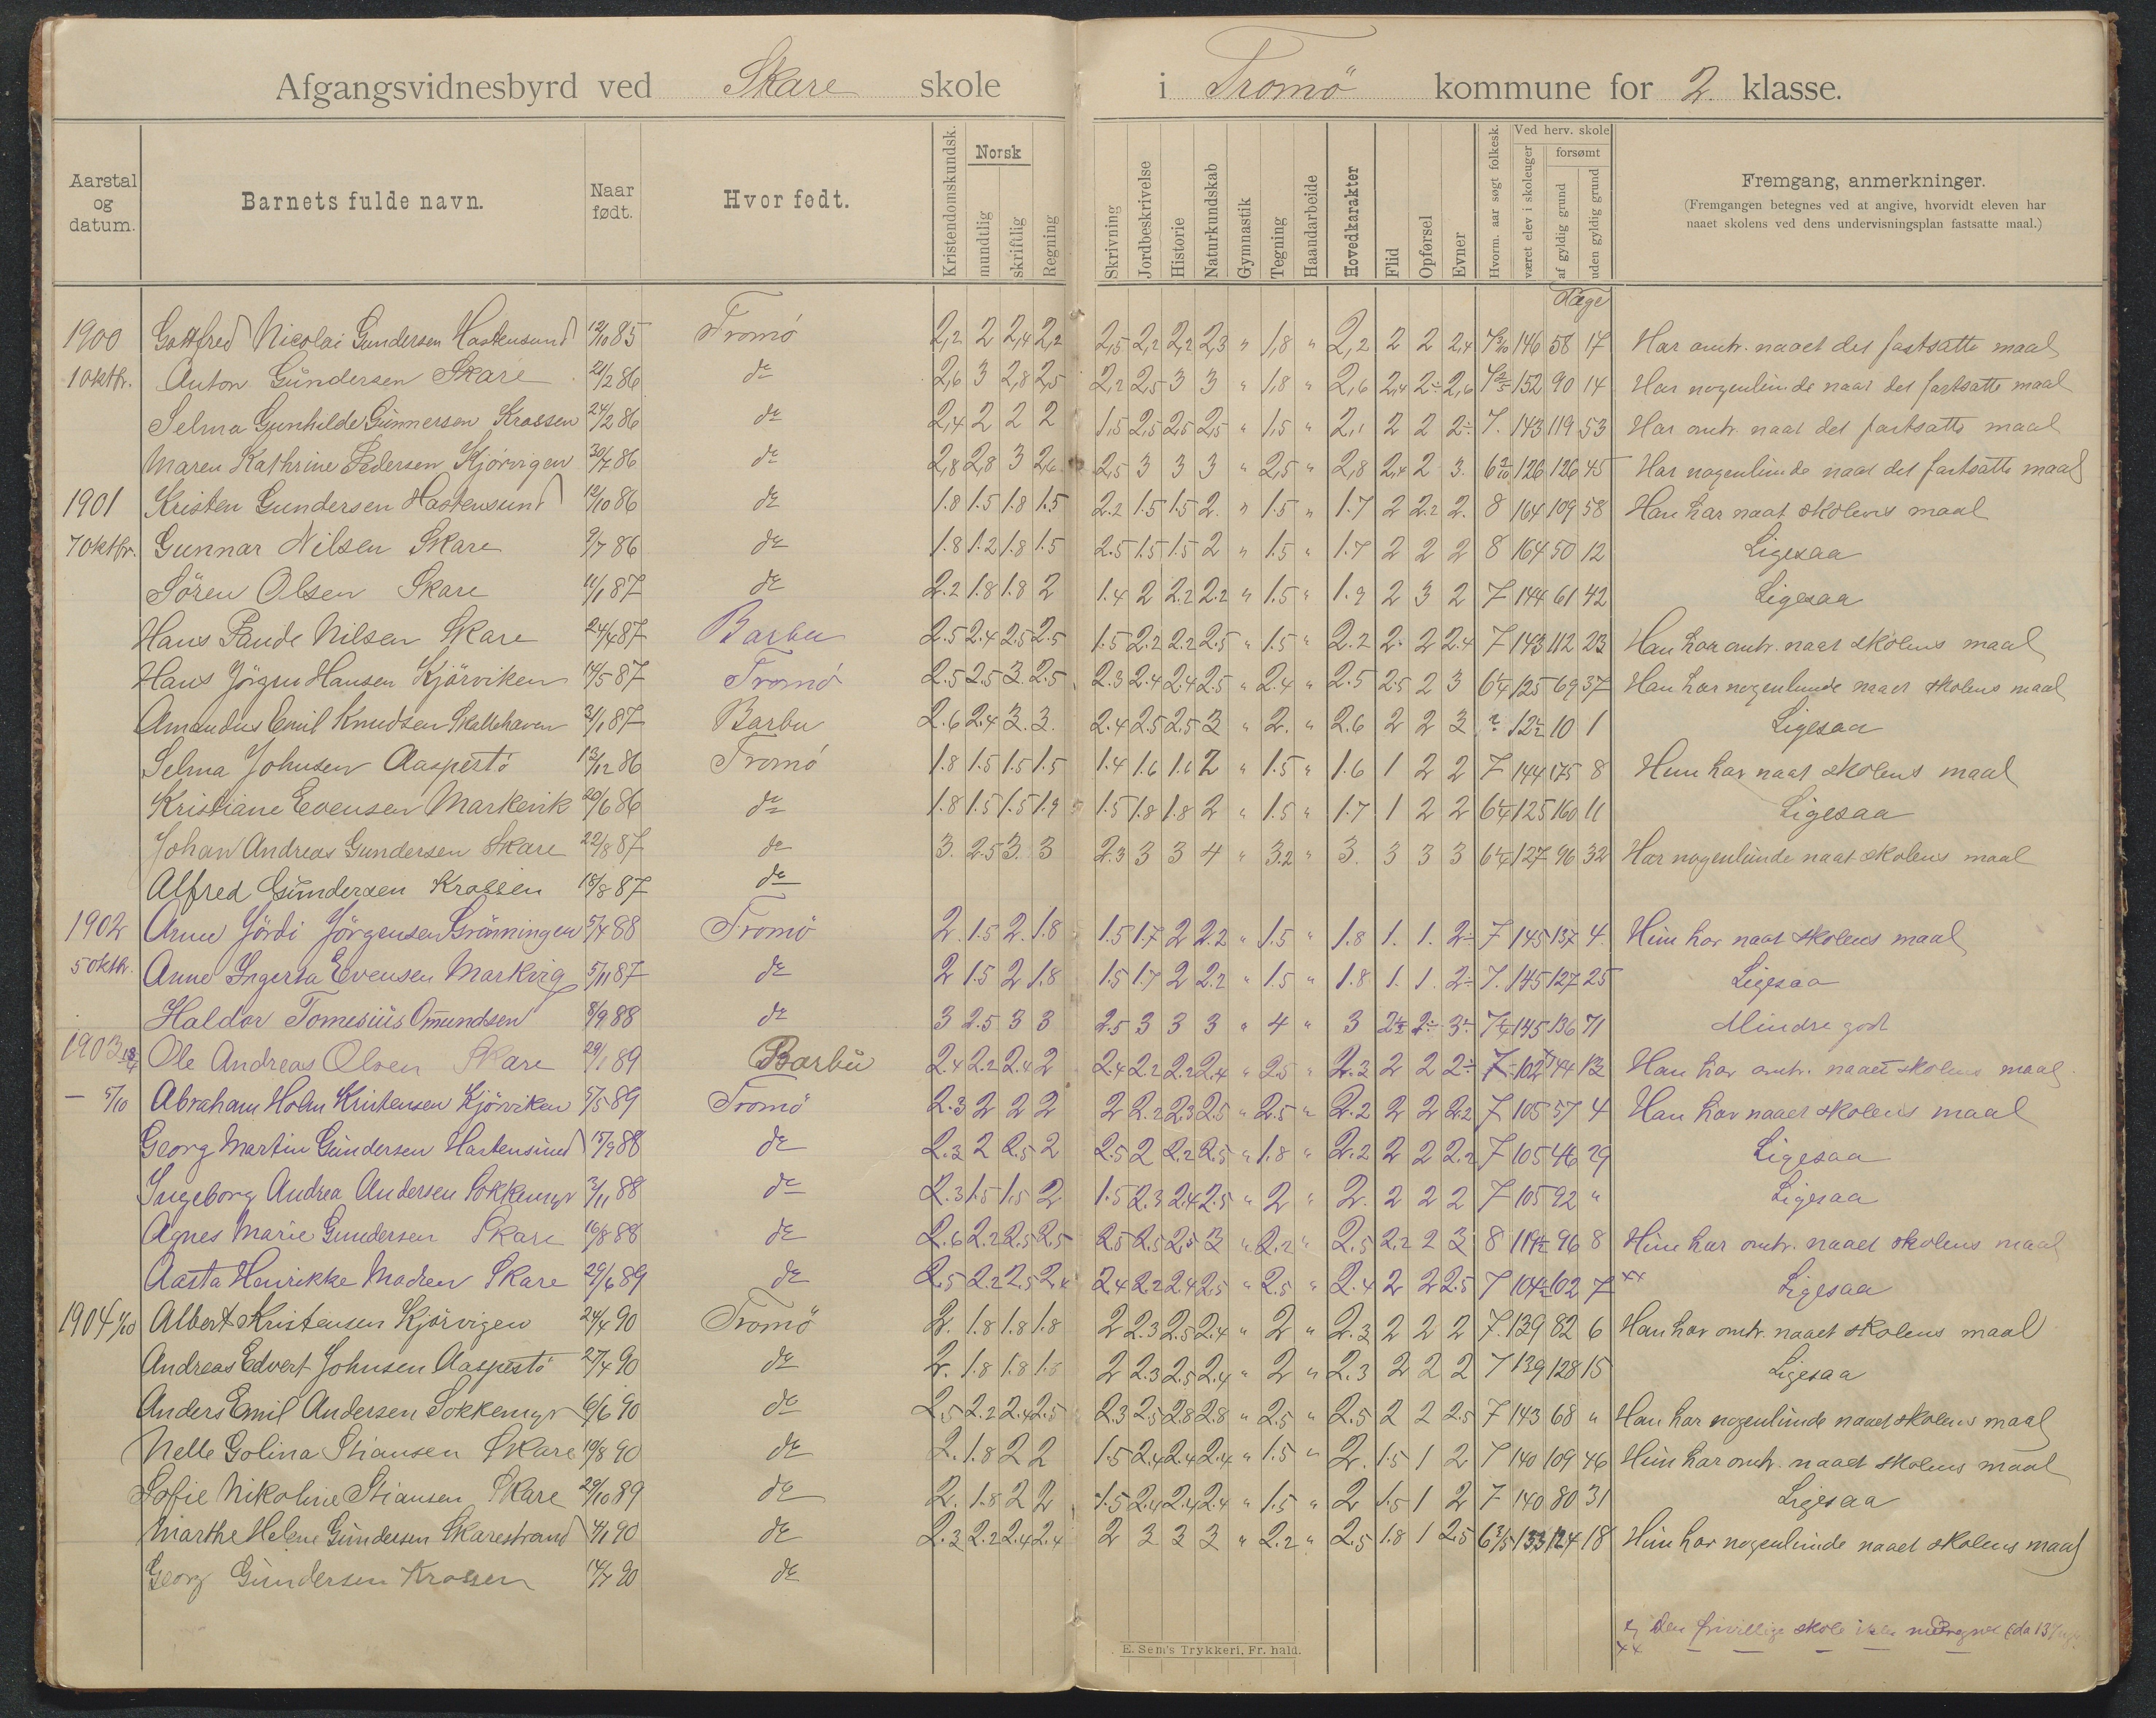 Afgangsvidnesbyrd ved Skare skole i Tromö kommune for 2. klasse.
Aarstal og datum. Barnets fulde navn. Naar født. Hvor født. Kristendomskundsk. Norsk mundtlig skriftlig Regning Skrivning Jordbeskrivelse Historie Naturkundskab Gymnastik Tegning Haandarbeide Hovedkarakter Flid Opførsel Evner Hvorm. aar søgt folkesk. Ved herv. skole været elev i skoleuger forsømt af gyldig grund uden gyldig grund Fremgang, anmerkninger.
(Fremgangen betegnes ved at angive, hvorvidt eleven har
naaet skolens ved dens undervisningsplan fastsatte maal.)
Dage
1900 Gottfred Nicolai Gundersen Hastensund 12/10 85 Tromö 2,2 2 2,4 2,2 2,5 2,2 2,2 2,3 " 1,8 " 2,2 2 2 2,4 146 58 17 Har omtr. naaet det fastsatte maal
1 oktbr. Anton Gundersen Skare 21/2 86 do 2,6 3 2,8 2,5 2,2 2,5 3 3 " 1,8 " 2,6 2,4 2÷ 2,6 152 90 14 Har nogenlunde naat det fastsatte maal
Selma Gunhilde Gunnersen Krossen 24/2 86 do 2,4 2 2 2 1,5 2,5 2,5 2,5 " 1,5 " 2,1 2 2 2÷ 7. 143 119 53 Har omtr. naat det fastsatte maal
Maren Kathrine Pedersen Kjörvigen 30/7 86 do 2,8 2,8 3 2,6 2,5 3 3 3 " 2,5 " 2,8 2,4 2 3. 126 126 45 Har nogenlunde naat det fastsatte maal
1901 Kristen Gundersen Hastensund 12/10 86 do 1.8 1.5 1.8 1.5 2.2 1.5 1.5 2. " 1.5 " 1.7 2 2.2 2. 8 164 109 58 Han har naat skolens maal
7 oktbr. Gunnar Nilsen Skare 9/7 86 do 1.8 1.2 1.8 1.5 2.5 1.5 1.5 2 " 1.5 " 1.7 2 2 2 8 164 50 12 Ligesaa
Sören Olsen Skare 11/1 87 do 2.2 1.8 1.8 2 1.4 2 2.2 2.2 " 1.5 " 1.9 2 3 2 7 144 61 42 Ligesaa
Hans Nilsen Skare 24/4 87 Barbu 2.5 2.4 2.5 2.5 1.5 2.2 2.2 2.5 " 1.5 " 2.2 2. 2 2.4 7 143 112 23 Han har omtr. naat skolens maal
Hans Jörgen Hansen Kjörviken 14/5 87 Tromö 2.5 2.5 3. 2.5 2.3 2.4 2.4 2.5 " 2.4 " 2.5 2.5 2 3 6¼ 125 69 37 Han har nogenlunde naaet skolens maal
Amandus Emil Knudsen Skallehaven 3/1 87 Barbu 2.6 2.4 3. 3. 2.4 2.5 2.5 3 " 2. " 2.6 2 2 3 ? 12½ 10 1 Ligesaa
Selma Johnsen Aaspestö 13/12 86 Tromö 1.8 1.5 1.5 1.5 1.4 1.6 1.6 2 " 1.5 " 1.6 1 2 2 7 144 175 8 Hun har naat skolens maal
Kristiane Evensen Markevik 20/6 86 do 1.8 1.5 1.5 1.9 1.5 1.8 1.8 2 " 1.5 " 1.7 1 2 2 6¼ 125 160 11 Ligesaa
Johan Andreas Gundersen Skare 22/8 87 do 3. 2.5 3. 3 2.3 3 3 4 " 3.2 " 3. 3 3 3 6¼ 127 96 32 Har nogenlunde naat skolens maal
Alfred Gundersen Krossen 18/8 87 do
1902 Anne Jördi Jörgensen Grönningen 5/4 88 Tromö 2. 1.5 2. 1.8 1.5 1.7 2 2.2 " 1.5 " 1.8 1. 1. 2÷ 7 145 137 4. Hun har naat skolens maal
5 oktbr. Anne Ingerta Evensen Markvig 5/11 87 do 2 1.5 2 1.8 1.5 1.7 2 2.2 " 1.5 " 1.8 1. 1. 2÷ 7. 145 127 25 Ligesaa
Haldor Tomesius Omundsen 8/9 88 do 3 2.5 3 3 2.5 3 3 3 " 4 " 3 2½ 2÷ 3÷ 145 136 71 Mindre godt
1903 18/4 Ole Andreas Olsen Skare 29/1 89 Barbu 2.4 2.2 2.4 2 2.4 2.2 2.2 2.4 " 2.5 " 2.3 2 2 2÷ 7 102 44 13 Han har omtr. naaet skolens maal.
— 5/10 Abraham Holm Kristensen Kjörviken 5/5 89 Tromö 2.3 2 2 2 2 2.2 2.3 2.5 " 2.5 " 2.2 2 2 2.2 7 105 57 4 Han har naaet skolens maal
Georg Martin Gundersen Hastensund 15/9 88 do 2.3 2 2.5 2 2.5 2 2.2 2.5 " 1.8 " 2.2 2 2 2.2 7 105 46 29 Ligesaa
Ingeborg Andrea Andersen Sokkemyr 3/11 88 do 2.3 1.5 1.5 2 1.5 2.3 2.4 2.5 " 2 " 2. 2 2 2 7 105 92 " Ligesaa
Agnes Marie Gundersen Skare 16/8 88 do 2.6 2.2 2.5 2.5 2.5 2.5 2.5 3 " 2.2 " 2.5 2.2 2 3 8 119½ 96 8 Hun har omtr. naaet skolens maal
Aasta Henrikke Madsen Skare 29/6 89 do 2.5 2.2 2.5 2.4 2.2 2.4 2.5 " 2.5 " 2.4 2 2 2.5 7 104½ 102 7 xx Ligesaa
1904 Albert Kristensen Kjörvigen 24/4 90 Tromö 2. 1.8 1.8 1.8 2 2.3 2.5 2.4 " 2 " 2.3 2 2 2 7. 139 82 6 Han har omtr. naaet skolens maal
Andreas Edvert Johnsen Aaspestö 27/4 90 do 2. 1.8 1.8 1.8 2 2.3 2.5 2.4 " 2 " 2.3 2 2 2 7 139 128 15 Ligesaa
Anders Emil Andersen Sokkemyr 6/6 90 do 2.5 2.2 2.4 2.5 2.3 2.5 2.8 2.8 " 2.5 " 2.5 2 2 2.5 7 143 68 " Han har nogenlunde naaet skolens maal
Nelle Golina Stiansen Skare 19/8 90 do 2. 1.8 2 2 1.5 2.4 2.4 2.4 " 1.5 " 2. 1.5 1 2 7 140 109 46 Hun har omtr. naaet skolens maal
Sofie Nikoline Stiansen Skare 29/10 89 do 2. 1.8 2 2 1.5 2.4 2.4 2.4 " 1.5 " 2 1.5 1 2 7 140 80 31 Ligesaa
Marthe Helene Gundersen Skarestrand 4/1 90 do 2.3 2.2 2.4 2.4 2 3 3 3 " 2.2 " 2.5 1.8 1 2.5 6 3/5 133 124 18 Hun har nogenlunde naaet skolens maal
Georg Gundersen Krossen 14/7 90 do
Den frivillige skole ikke medregnet
xx
E. Sem's Trykkeri, Fr. hald.